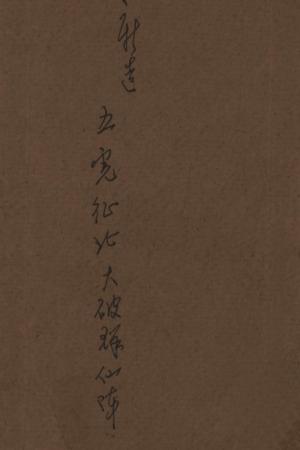 新造 五虎征北大破群仙陣